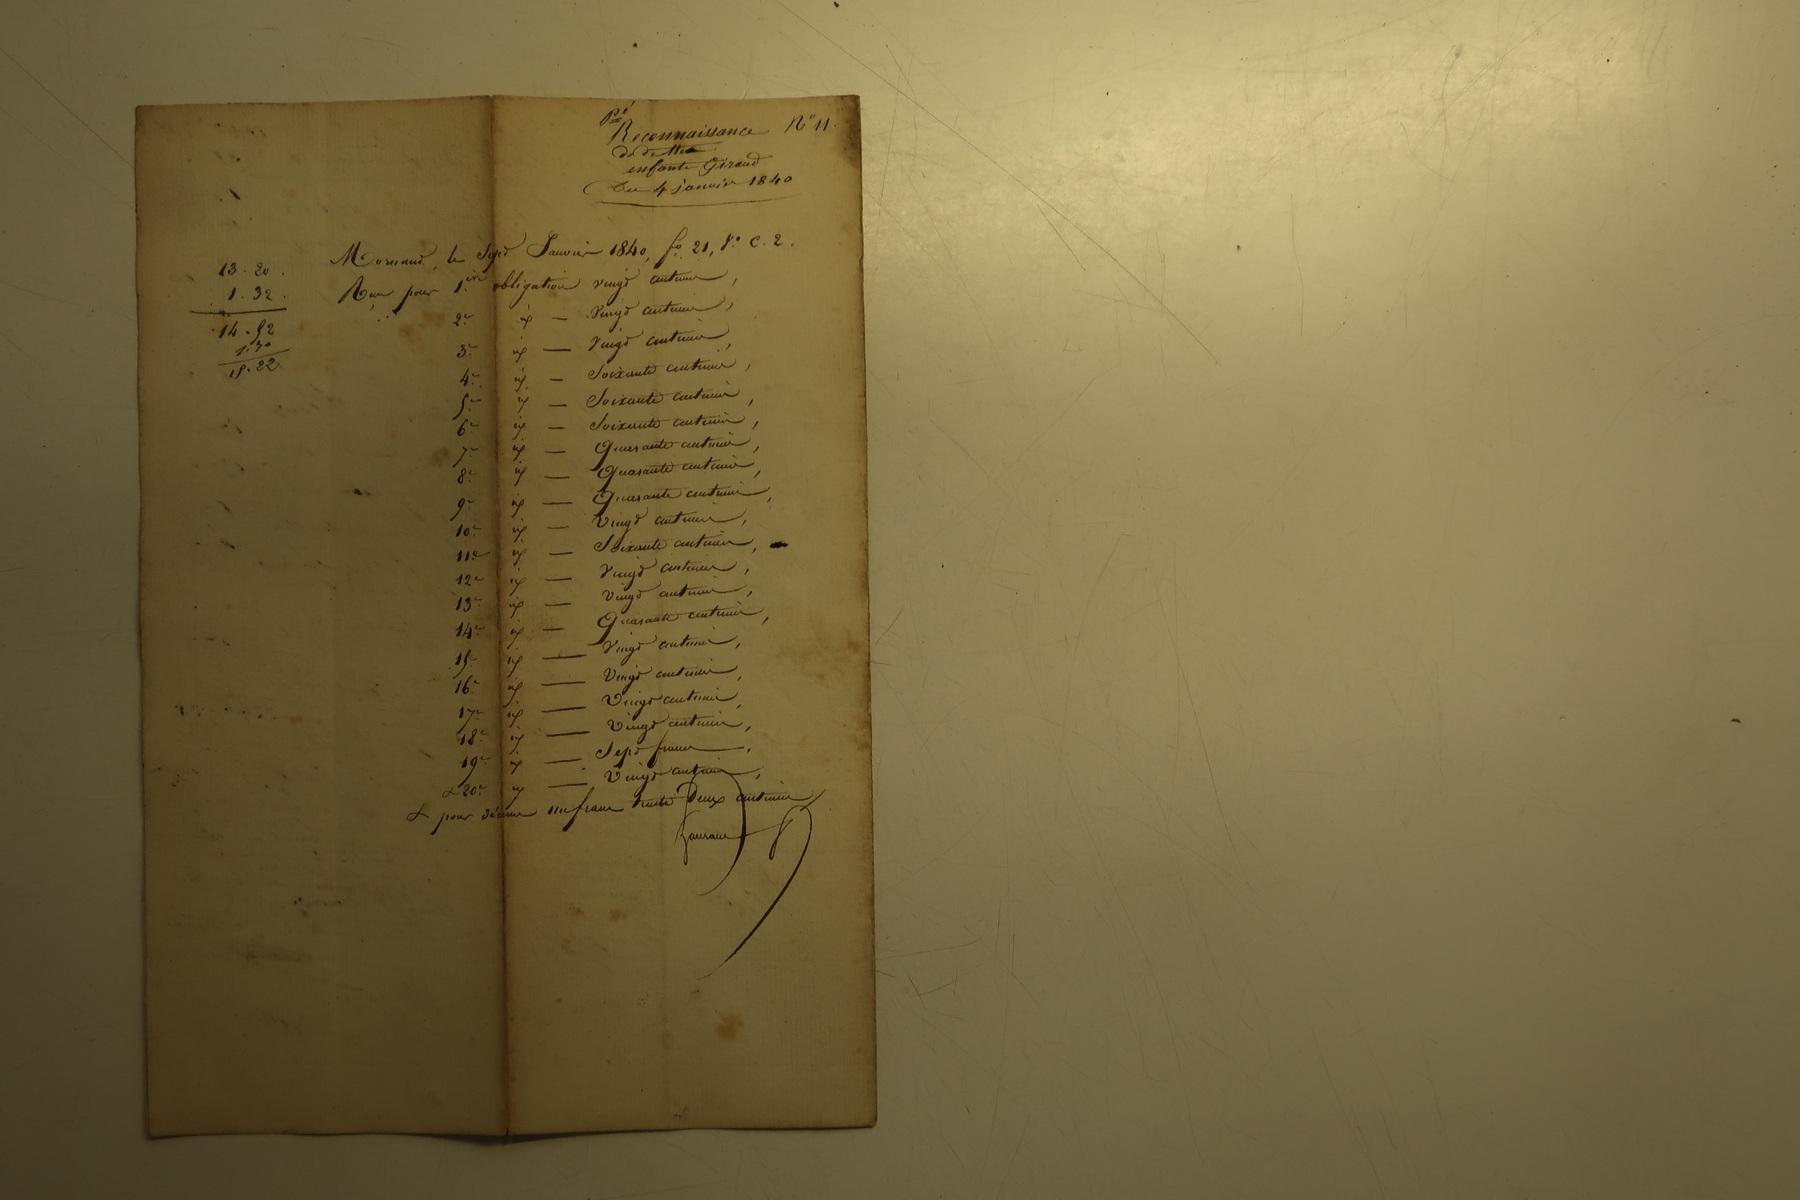 Reconnaissance N° 11.
de dettes
enfants Giraud
Du 4 janvier 1840
Mornand, le Sept Janvier 1840, f°. 21, V° C. 2.
Reçu pour 1ère obligation vingt centimes,
2e id — Vingt centimes,
3e id — Vingt centimes,
4e id — Soixante centimes,
5e id — Soixante centimes,
6e id — Soixante centimes,
7e id — Quarante centimes,
8e id — Quarante centimes,
9e id — Quarante centimes,
10e id — Vingt centimes,
11e id — Soixante centimes,
12e id — Vingt centimes,
13e id — vingt centimes,
14e id — Quarante centimes,
15e id — Vingt centimes,
16e id — Vingt centimes,
17e id — Vingt centimes,
18e id — Vingt centimes,
19e id — Sept francs,
& 20e id — Vingt centimes,
& pour décime un franc trente Deux centimes
13.20.
1.32.
14.52
1.70